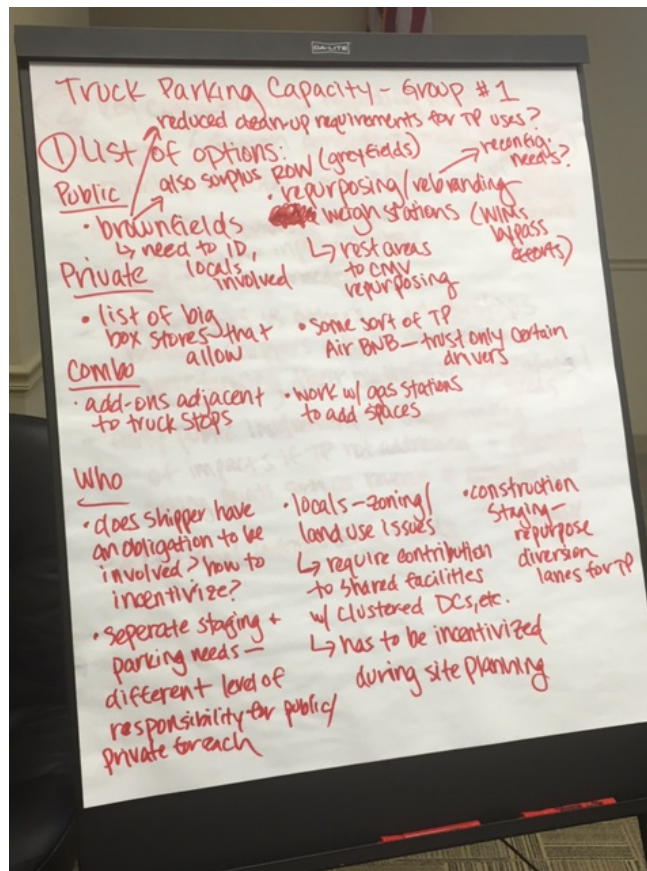 DA-LITE
Truck Parking Capacity - Group #1
reduced clean-up requirements for TP uses?
① List of options:
also surplus ROW (greyfields)
Public
• brownfields
↳ need to ID,
locals involved
• repurposing/rebranding
weigh stations (WIMs
bypass
efforts)
→ reconfig.
needs?
↳ rest areas
to CMV
repurposing
Private
• list of big
box stores that
allow
• some sort of TP
Air BNB - trust only certain
drivers
Combo
• add-ons adjacent
to truck stops
• work w/ gas stations
to add spaces
Who
• does shipper have
an obligation to be
involved? how to
incentivize?
• seperate staging +
parking needs -
different level of
responsibility for public/
private for each
• locals - zoning/
land use issues
↳ require contribution
to shared facilities
w/ clustered DCs, etc.
↳ has to be incentivized
during site planning
• construction
staging -
repurpose
diversion
lanes for TP